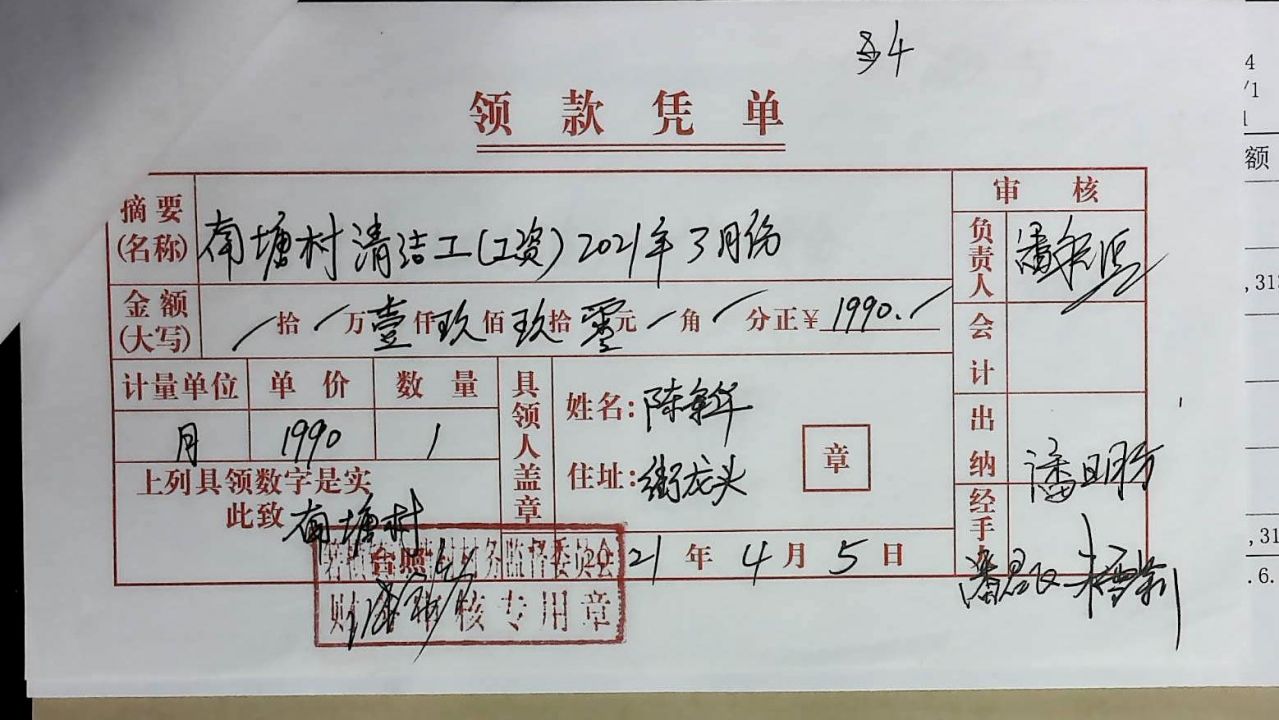 领款凭单
摘要(名称) 南塘村清洁工(工资)2021年3月份
金额(大写) 拾 万壹仟玖佰玖拾零元 角 分正¥1990.
计量单位 单价 数量
月 1990 1
上列具领数字是实
此致 南塘村
具领人盖章
姓名:陈
住址:街龙头
章
21年4月5日
审核
负责人 潘
会计
出纳 潘
经手
务监督委员会
财 核专用章
4
/1
1
额
,31
,31
.6.